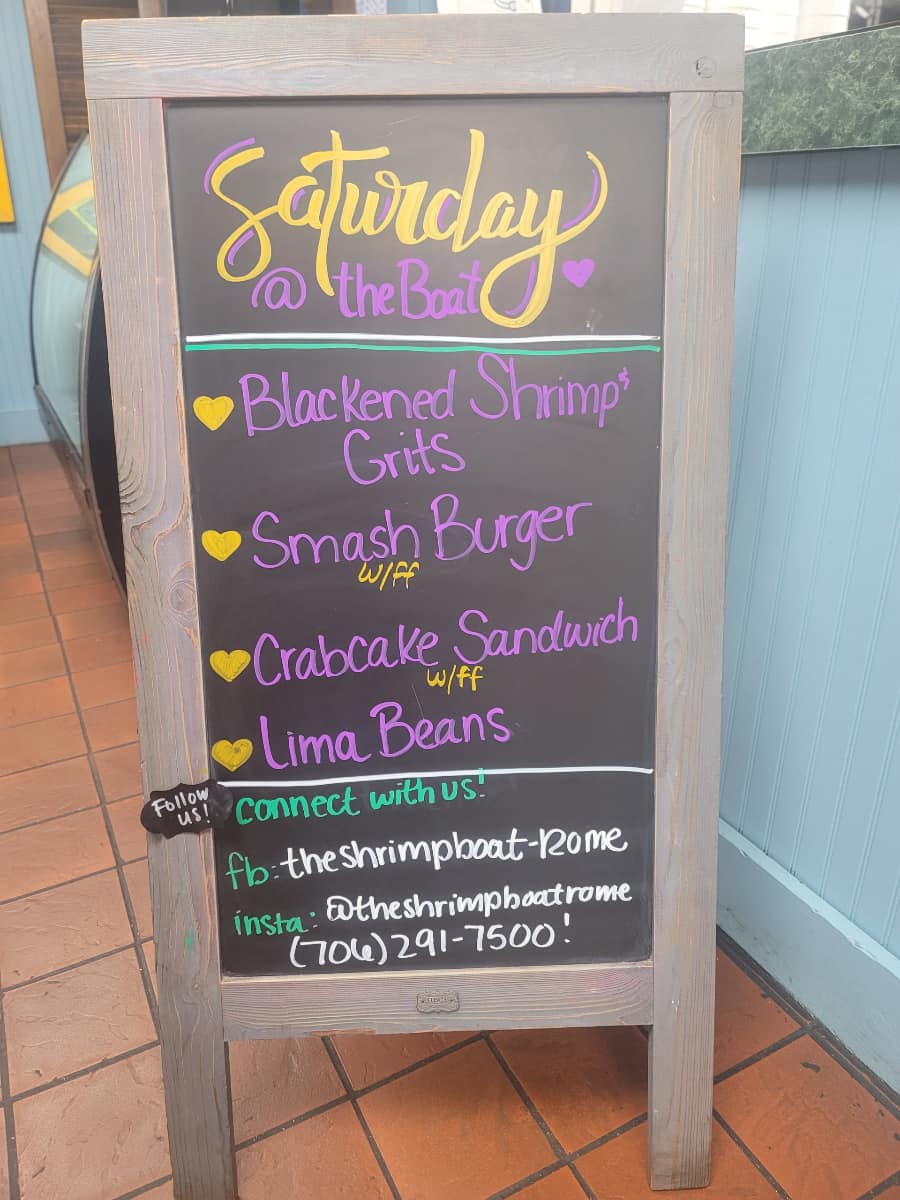 Saturday
@ the Boat
Blackened Shrimp &
Grits
Smash Burger
w/ff
Crabcake Sandwich
w/ff
Lima Beans
Follow
us!
connect with us!
fb: theshrimpboat-Rome
insta: @theshrimpboatrome
(706)291-7500!